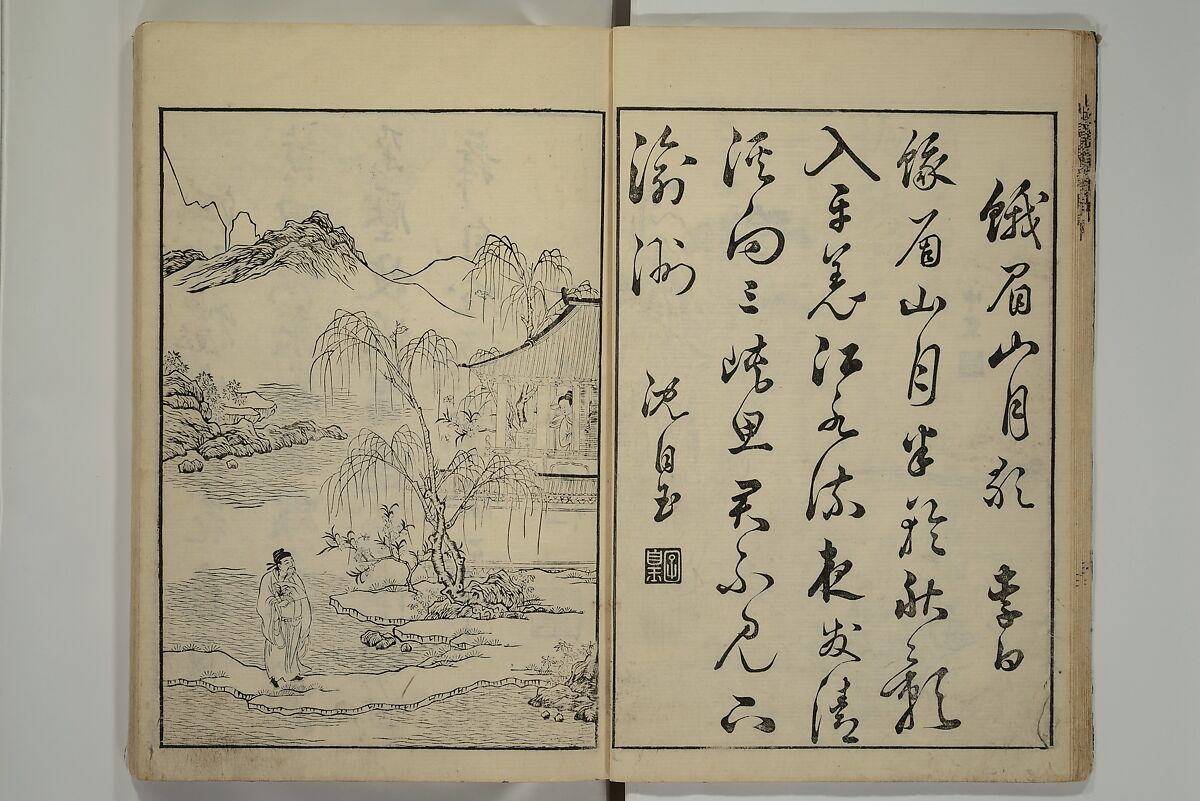 蛾眉山月歌 李白
蛾眉山月半輪秋影
入平羌江水流夜發清
溪向三峽思君不見下
渝州 沈自玉